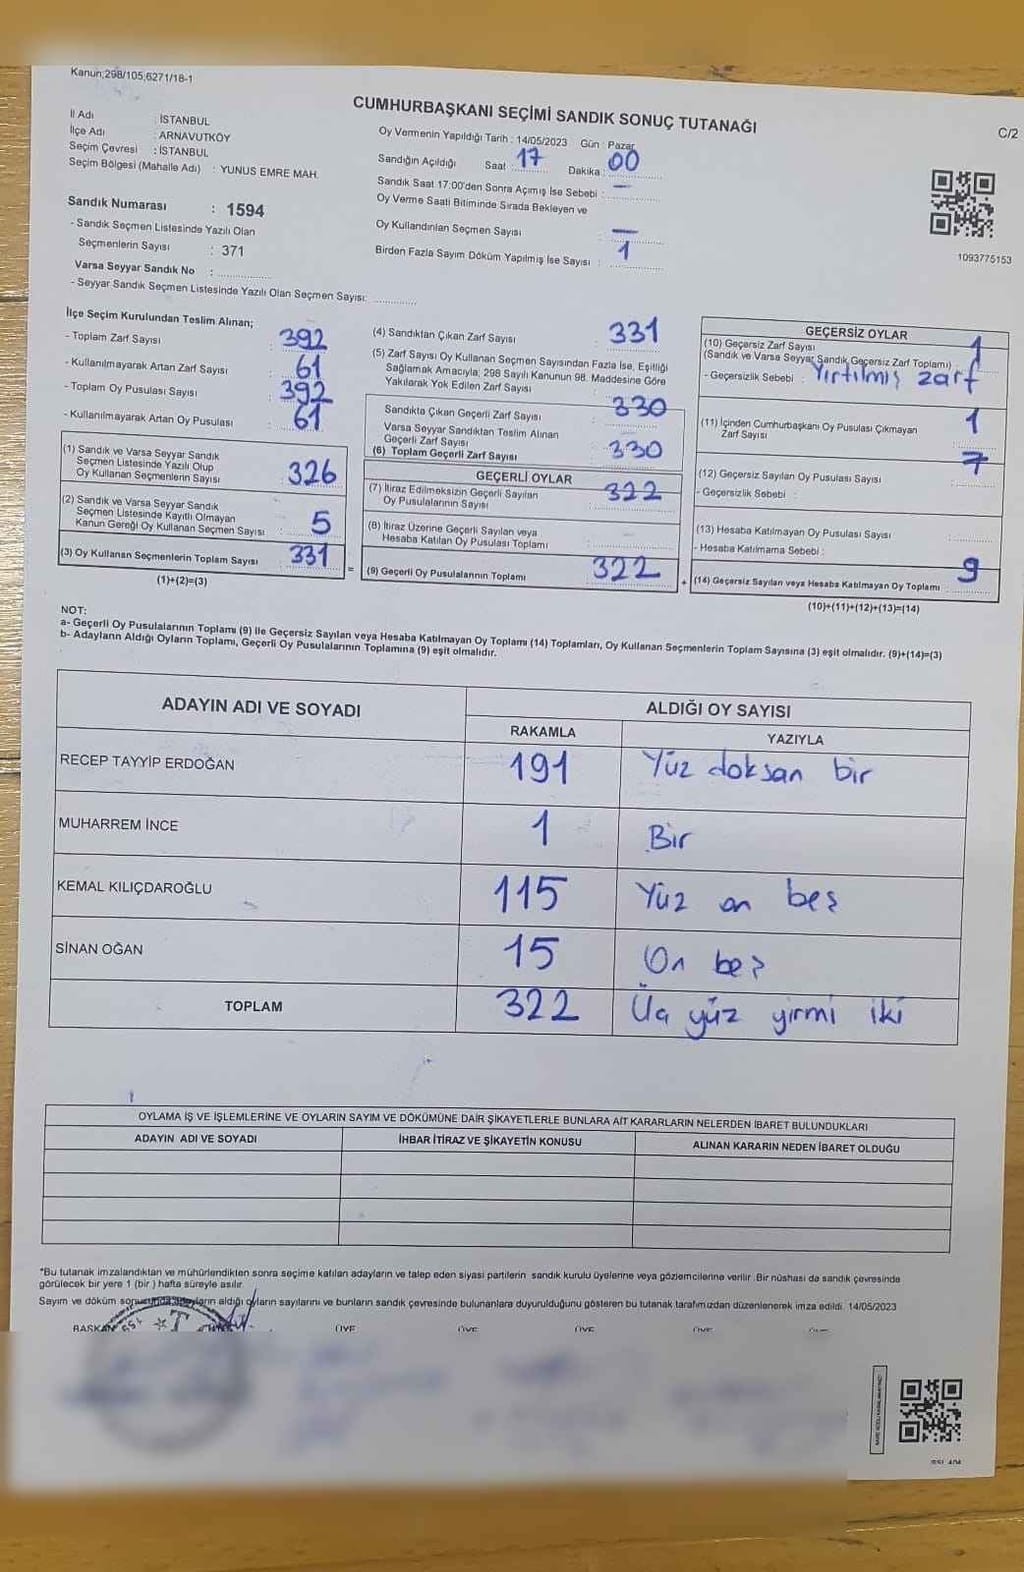 Kanun;298/105,6271/18-1
CUMHURBAŞKANI SEÇİMİ SANDIK SONUÇ TUTANAĞI
C/2
İl Adı : İSTANBUL
İlçe Adı : ARNAVUTKÖY
Seçim Çevresi : İSTANBUL
Seçim Bölgesi (Mahalle Adı) : YUNUS EMRE MAH.
Sandık Numarası : 1594
- Sandık Seçmen Listesinde Yazılı Olan
Seçmenlerin Sayısı : 371
Varsa Seyyar Sandık No :
- Seyyar Sandık Seçmen Listesinde Yazılı Olan Seçmen Sayısı:
Oy Vermenin Yapıldığı Tarih : 14/05/2023 Gün : Pazar
Sandığın Açıldığı Saat : 17 Dakika : 00
Sandık Saat 17:00'den Sonra Açımış İse Sebebi : —
Oy Verme Saati Bitiminde Sırada Bekleyen ve
Oy Kullandırılan Seçmen Sayısı : —
Birden Fazla Sayım Döküm Yapılmış İse Sayısı : 1
1093775153
İlçe Seçim Kurulundan Teslim Alınan;
- Toplam Zarf Sayısı : 392
- Kullanılmayarak Artan Zarf Sayısı : 61
- Toplam Oy Pusulası Sayısı : 392
- Kullanılmayarak Artan Oy Pusulası : 61
(1) Sandık ve Varsa Seyyar Sandık
Seçmen Listesinde Yazılı Olup
Oy Kullanan Seçmenlerin Sayısı : 326
(2) Sandık ve Varsa Seyyar Sandık
Seçmen Listesinde Kayıtlı Olmayan
Kanun Gereği Oy Kullanan Seçmen Sayısı : 5
(3) Oy Kullanan Seçmenlerin Toplam Sayısı : 331
(1)+(2)=(3)
(4) Sandıktan Çıkan Zarf Sayısı : 331
(5) Zarf Sayısı Oy Kullanan Seçmen Sayısından Fazla İse, Eşitliği
Sağlamak Amacıyla; 298 Sayılı Kanunun 98. Maddesine Göre
Yakılarak Yok Edilen Zarf Sayısı :
Sandıkta Çıkan Geçerli Zarf Sayısı : 330
Varsa Seyyar Sandıktan Teslim Alınan
Geçerli Zarf Sayısı :
(6) Toplam Geçerli Zarf Sayısı : 330
GEÇERLİ OYLAR
(7) İtiraz Edilmeksizin Geçerli Sayılan
Oy Pusulalarının Sayısı : 322
(8) İtiraz Üzerine Geçerli Sayılan veya
Hesaba Katılan Oy Pusulası Toplamı :
= (9) Geçerli Oy Pusulalarının Toplamı : 322
GEÇERSİZ OYLAR
(10) Geçersiz Zarf Sayısı : 1
(Sandık ve Varsa Seyyar Sandık Geçersiz Zarf Toplamı)
- Geçersizlik Sebebi : Yırtılmış zarf
(11) İçinden Cumhurbaşkanı Oy Pusulası Çıkmayan
Zarf Sayısı : 1
(12) Geçersiz Sayılan Oy Pusulası Sayısı : 7
- Geçersizlik Sebebi :
(13) Hesaba Katılmayan Oy Pusulası Sayısı :
- Hesaba Katılmama Sebebi :
+ (14) Geçersiz Sayılan veya Hesaba Katılmayan Oy Toplamı : 9
(10)+(11)+(12)+(13)=(14)
NOT:
a- Geçerli Oy Pusulalarının Toplamı (9) ile Geçersiz Sayılan veya Hesaba Katılmayan Oy Toplamı (14) Toplamları, Oy Kullanan Seçmenlerin Toplam Sayısına (3) eşit olmalıdır. (9)+(14)=(3)
b- Adayların Aldığı Oyların Toplamı, Geçerli Oy Pusulalarının Toplamına (9) eşit olmalıdır.
ADAYIN ADI VE SOYADI ALDIĞI OY SAYISI
RAKAMLA YAZIYLA
RECEP TAYYİP ERDOĞAN 191 Yüz doksan bir
MUHARREM İNCE 1 Bir
KEMAL KILIÇDAROĞLU 115 Yüz on beş
SİNAN OĞAN 15 On beş
TOPLAM 322 Üç yüz yirmi iki
OYLAMA İŞ VE İŞLEMLERİNE VE OYLARIN SAYIM VE DÖKÜMÜNE DAİR ŞİKAYETLERLE BUNLARA AİT KARARLARIN NELERDEN İBARET BULUNDUKLARI
ADAYIN ADI VE SOYADI İHBAR İTİRAZ VE ŞİKAYETİN KONUSU ALINAN KARARIN NEDEN İBARET OLDUĞU
*Bu tutanak imzalandıktan ve mühürlendikten sonra seçime katılan adayların ve talep eden siyasi partilerin sandık kurulu üyelerine veya gözlemcilerine verilir. Bir nüshası da sandık çevresinde
görülecek bir yere 1 (bir ) hafta süreyle asılır.
Sayım ve döküm sonucunda adayların aldığı oyların sayılarını ve bunların sandık çevresinde bulunanlara duyurulduğunu gösteren bu tutanak tarafımızdan düzenlenerek imza edildi. 14/05/2023
BAŞKAN ÜYE ÜYE ÜYE ÜYE